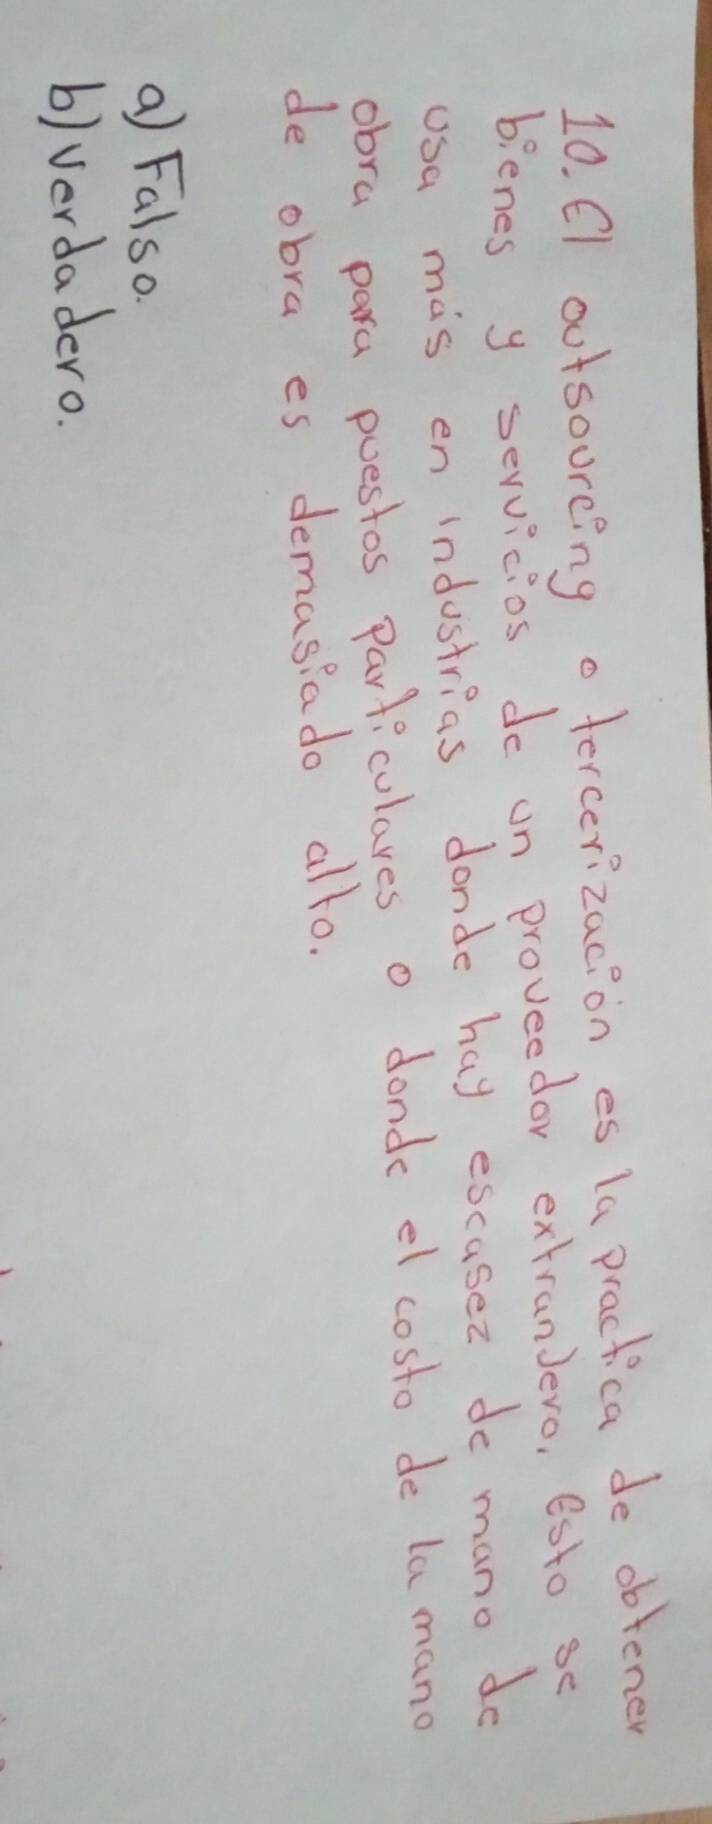 10. El outsourcing o tercerización es la practica de obtener
bienes y servicios de un proveedor extranjero, Esto se
usa más en industrias donde hay escasez de mano de
obra para puestos particulares o donde el costo de la mano
de obra es demasiado alto.
a) Falso.
b) Verdadero.